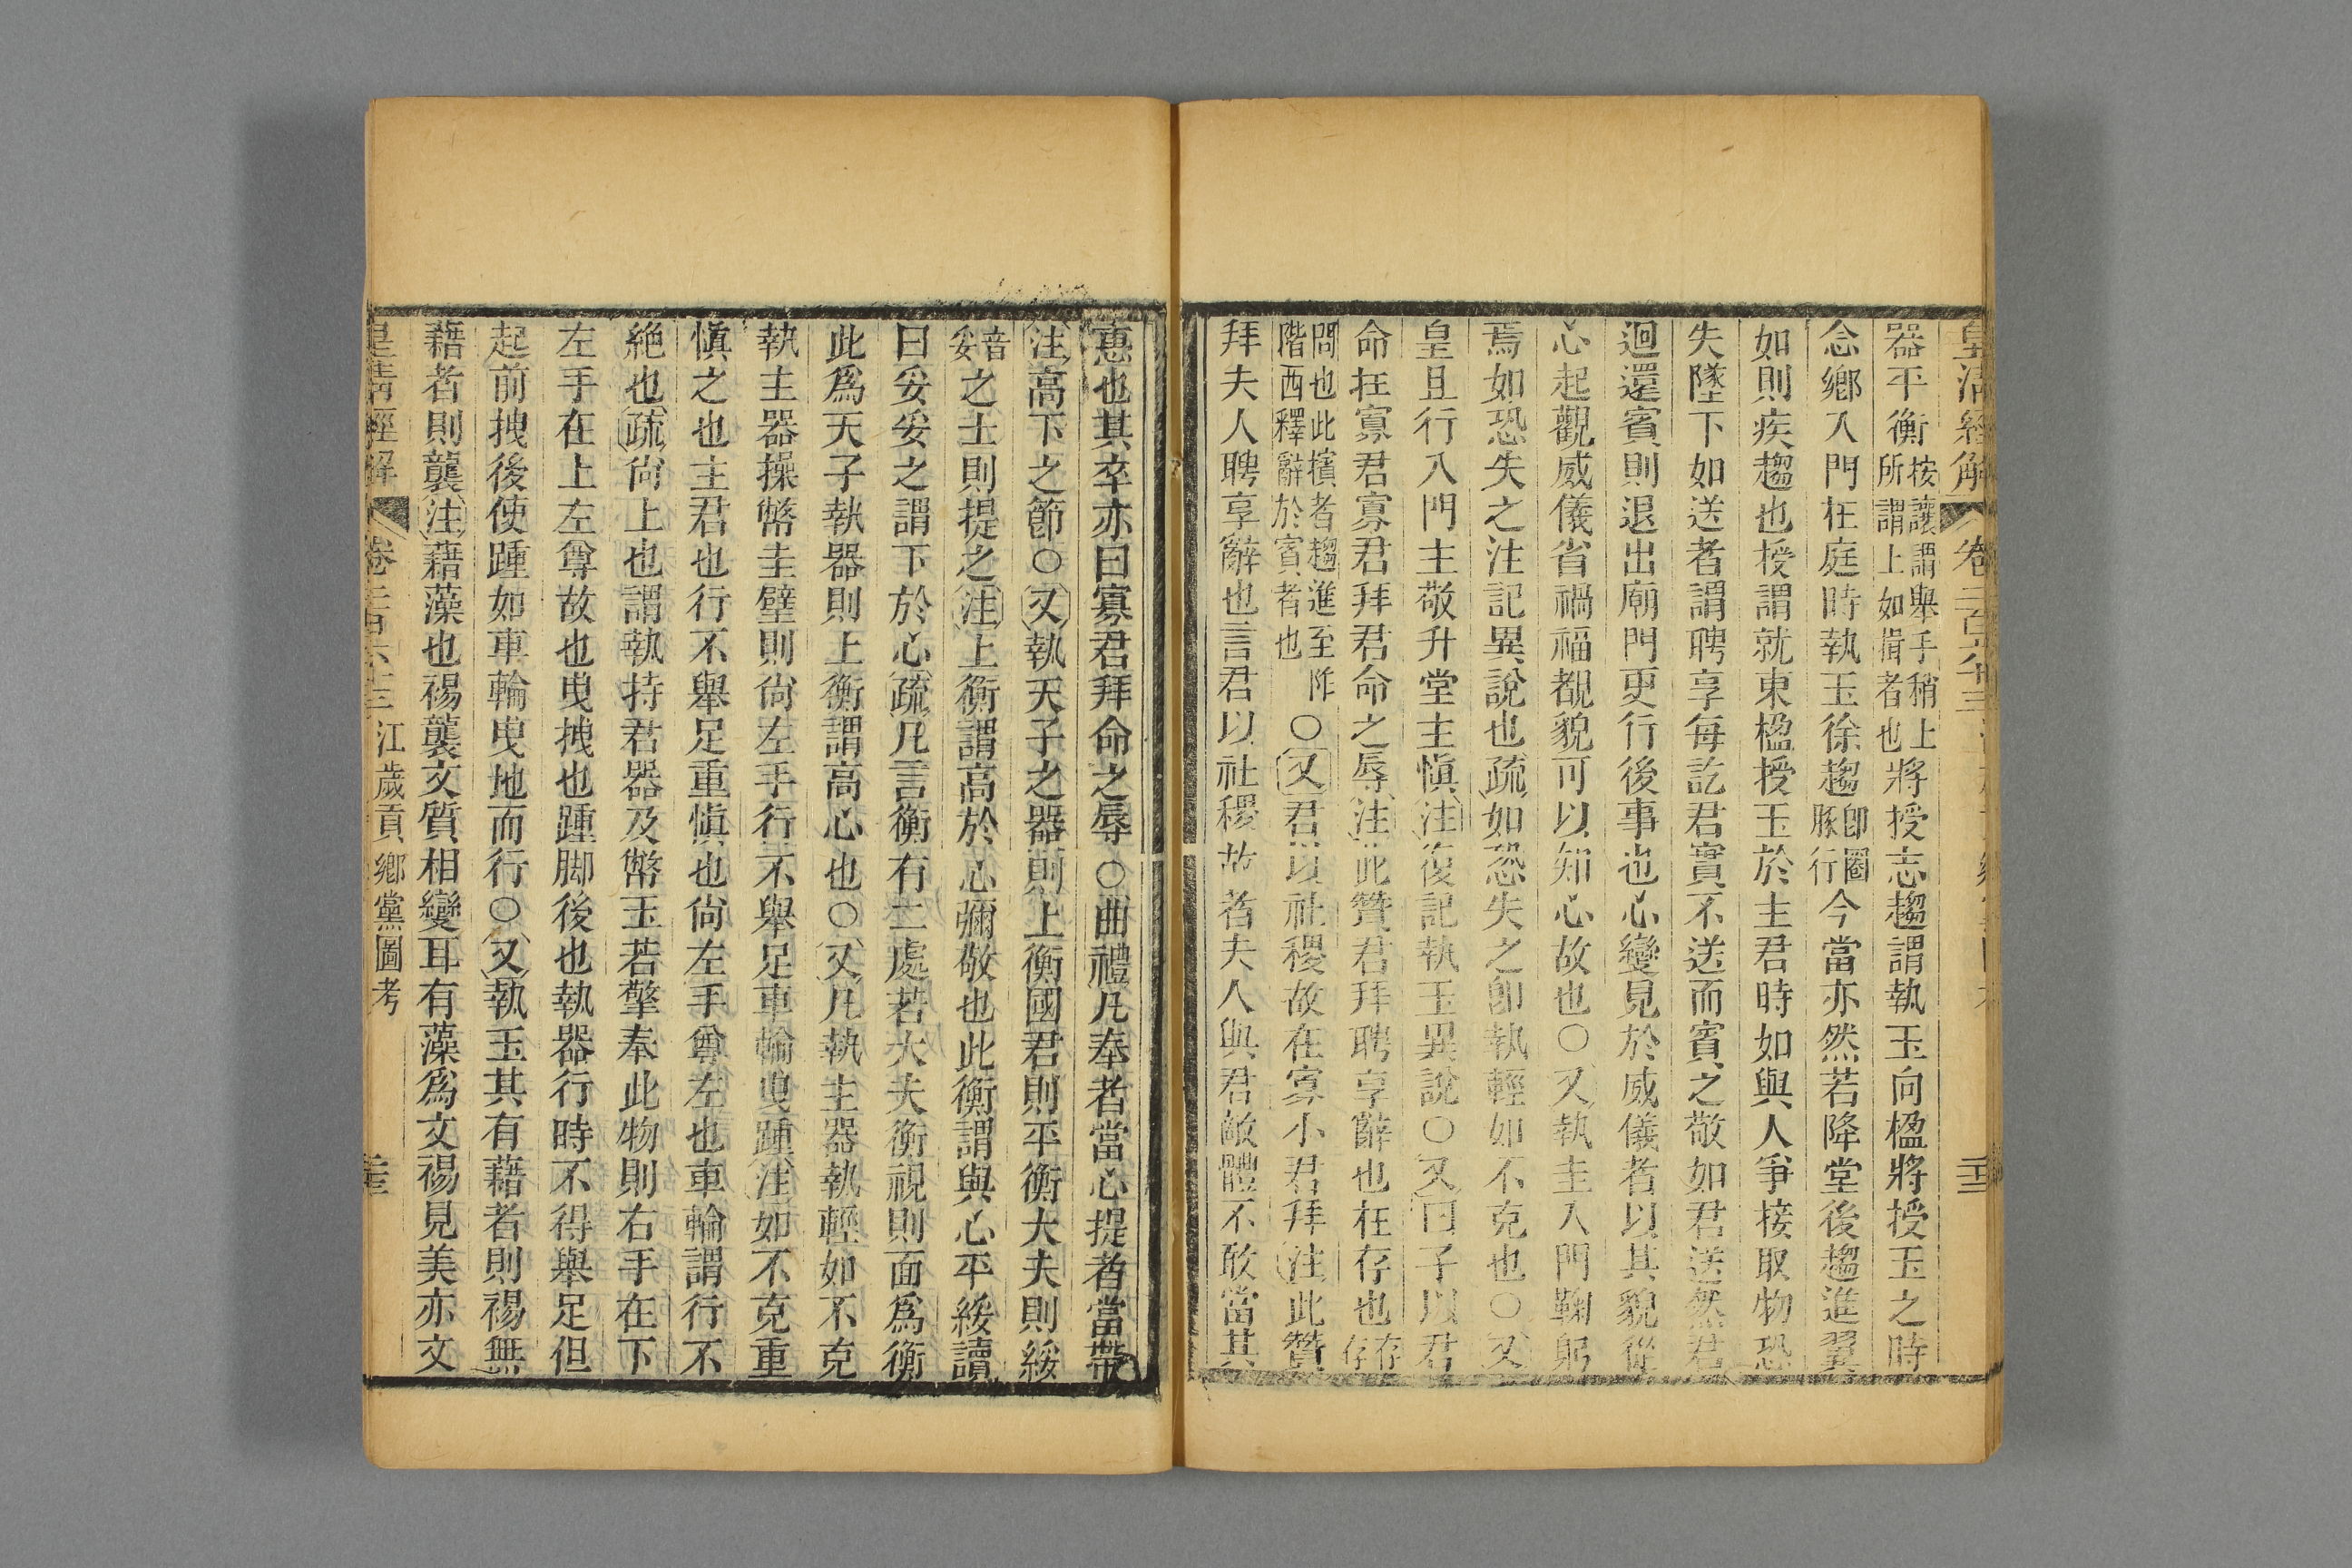 器平衡按讓謂舉手稍上所謂上如揖者也將授志趨謂執玉向楹將授玉之時
念鄉入門在庭時執玉徐趨卽圈豚行今當亦然若降堂後趨進翼
如則疾趨也授謂就東楹授玉於主君時如與人爭接取物恐
失墜下如送者謂聘享每訖君實不送而賓之敬如君送然君
迴還賓則退出廟門更行後事也心變見於威儀者以其貌從
心起觀威儀省禍福覩貌可以知心故也○又執圭入門鞠躬
焉如恐失之注記異說也疏如恐失之卽執輕如不克也○又
皇且行入門主敬升堂主愼注復記執玉異說○又曰子以君
命在寡君寡君拜君命之辱注此贊君拜聘享辭也在存也存存
問也此擯者趨進至阼階西釋辭於賓者也○又君以社稷故在寡小君拜注此贊
拜夫人聘享辭也言君以社稷故者夫人與君敵體不敢當其
惠也其卒亦曰寡君拜命之辱○曲禮凡奉者當心提者當帶
注高下之節○又執天子之器則上衡國君則平衡大夫則綏
音妥之士則提之注上衡謂高於心彌敬也此衡謂與心平綏讀
曰妥妥之謂下於心疏凡言衡有二處若大夫衡視則面爲衡
此爲天子執器則上衡謂高心也○又凡執主器執輕如不克
執主器操幣圭璧則尙左手行不舉足車輪曳踵注如不克重
愼之也主君也行不舉足重愼也尙左手尊左也車輪謂行不
絕也疏尙上也謂執持君器及幣玉若擎奉此物則右手在下
左手在上左尊故也曳拽也踵脚後也執器行時不得舉足但
起前拽後使踵如車輪曳地而行○又執玉其有藉者則裼無
藉者則襲注藉藻也裼襲文質相變耳有藻爲文裼見美亦文
皇淸經解 卷二百六十三 江歲貢鄉黨圖考